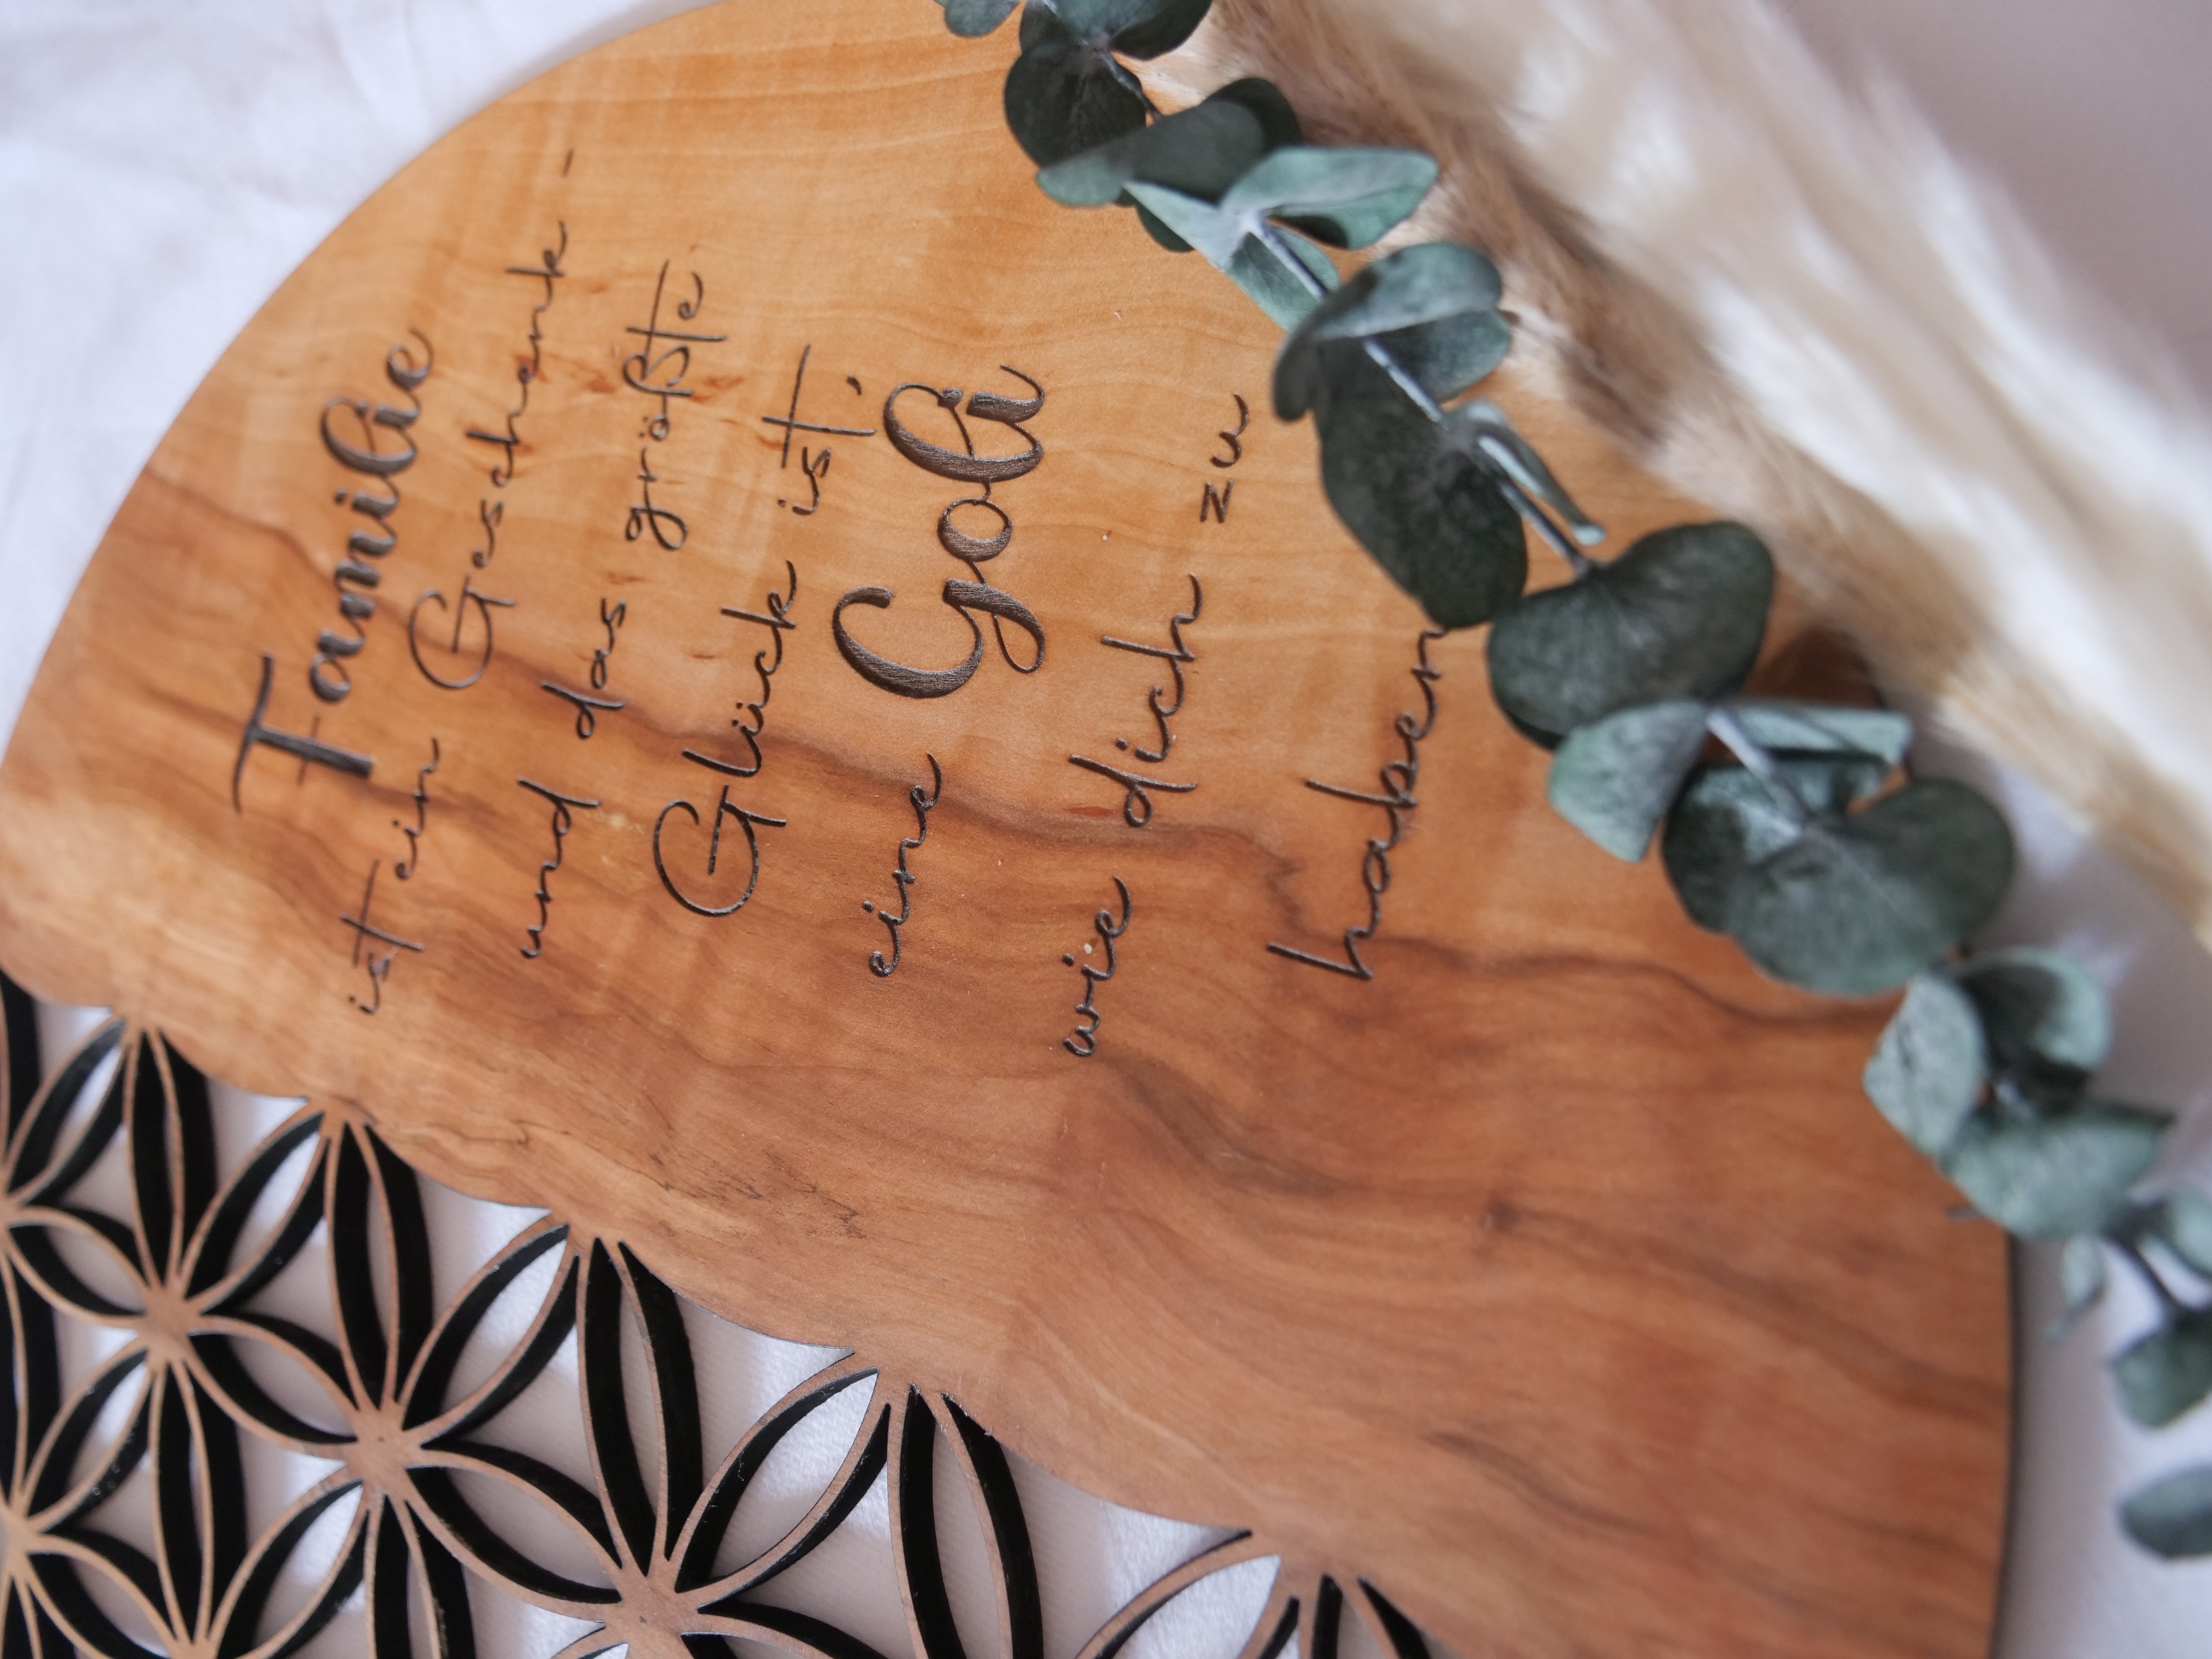 Familie
ist ein Geschenk -
und das größte
Glück ist,
eine Goli
wie dich zu
haben